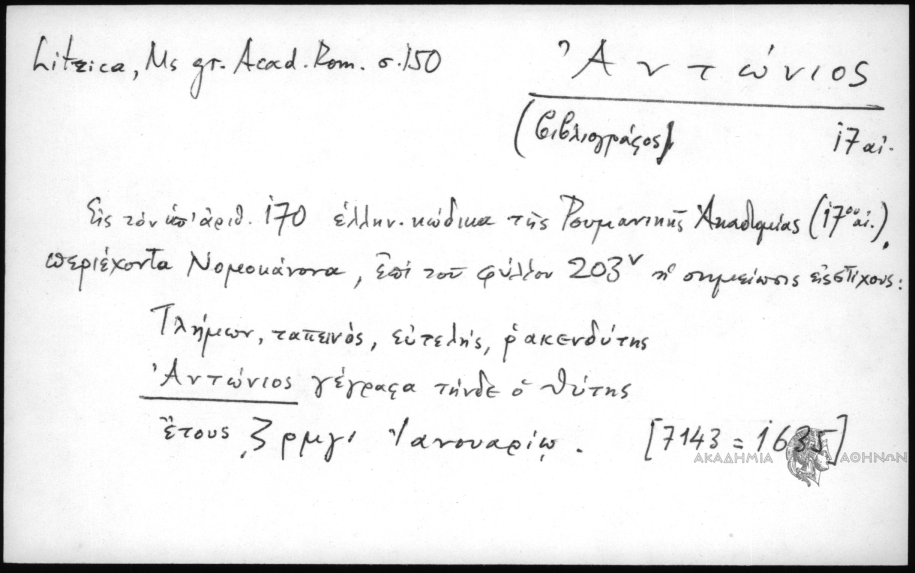 Litzica, Ms gr. Acad. Rom. σ. 150
Ἀντώνιος
(βιβλιογράφος) 17 αἰ.
Εἰς τὸν ὑπ' ἀριθ. 170 ἑλλην. κώδικα τῆς Ρουμανικῆς Ἀκαδημίας (17ου αἰ.),
περιέχοντα Νομοκάνονα, ἐπὶ τοῦ φύλλου 203v ἡ σημείωσις εἰς στίχους:
Τλήμων, ταπεινὸς, εὐτελὴς, ῥακενδύτης
Ἀντώνιος γέγραφα τήνδε ὁ θύτης
ἔτους ͵ζρμγʹ Ἰανουαρίῳ. [7143 = 1635]
ΑΚΑΔΗΜΙΑ ΑΘΗΝΩΝ